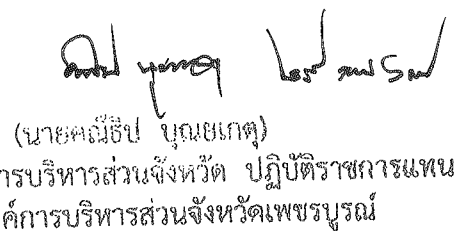 (นายคณีธิป บุณยเกตุ)
การบริหารส่วนจังหวัด ปฏิบัติราชการแทน
ค์การบริหารส่วนจังหวัดเพชรบูรณ์